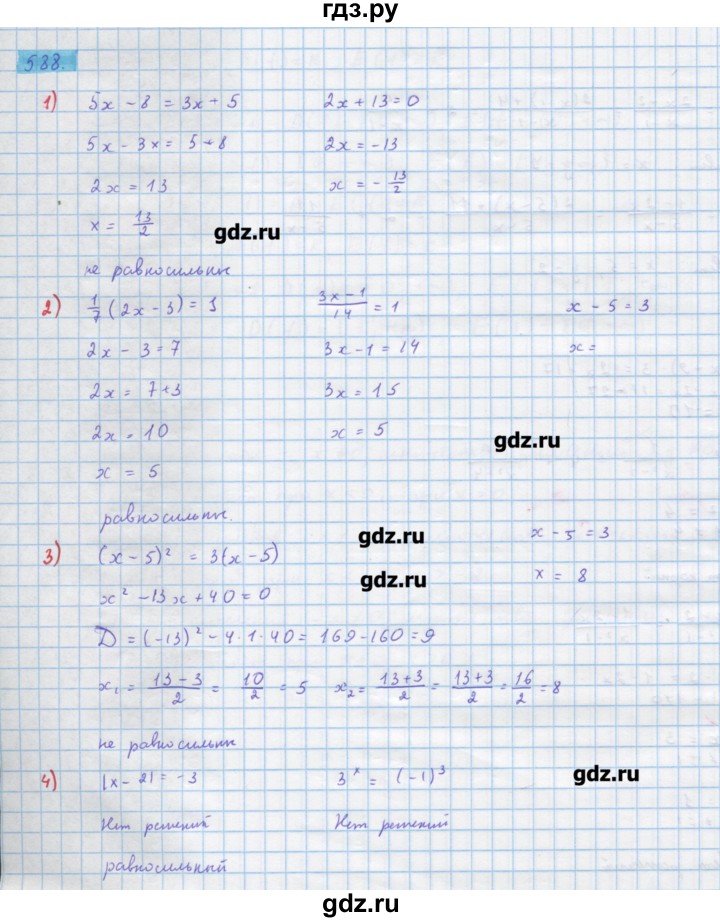 гдз.ру
588.
1) 5x - 8 = 3x + 5 2x + 13 = 0
5x - 3x = 5 + 8 2x = -13
2x = 13 x = - 13/2
x = 13/2 gdz.ru
не равносильны
2) 1/7 (2x - 3) = 1 (3x - 1)/14 = 1 x - 5 = 3
2x - 3 = 7 3x - 1 = 14 x =
2x = 7 + 3 3x = 15
2x = 10 x = 5 gdz.ru
x = 5
равносильны.
gdz.ru x - 5 = 3
3) (x - 5)² = 3(x - 5)
gdz.ru x = 8
x² - 13x + 40 = 0
D = (-13)² - 4·1·40 = 169 - 160 = 9
x₁ = (13 - 3)/2 = 10/2 = 5 x₂ = (13 + 3)/2 = (13 + 3)/2 = 16/2 = 8
не равносильны
4) |x - 2| = -3 3ˣ = (-1)³ gdz.ru
Нет решений Нет решений
равносильный